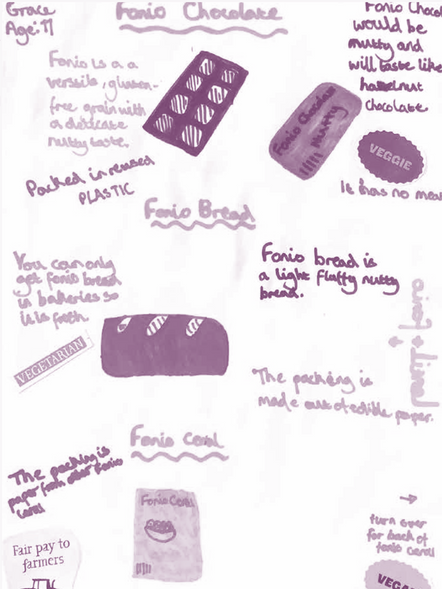 Grace
Age: 11
Fonio Chocolate
Fonio Choc
would be
nutty and
will taste like
hazelnut
chocolate
Fonio is a a
versile, gluten-
free grain with
a delicate
nutty taste.
Fonio Chocolate
Nutty
VEGGIE
It has no mea
Packed in reused
PLASTIC
Fonio Bread
You can only
get fonio bread
in bakeries so
it is fresh.
Fonio bread is
a light fluffy nutty
bread.
VEGETARIAN
The packing is
made out of edible paper.
Fonio Ceral
The packing is
paper from other fonio
ceral
Fonio Ceral
Fair pay to
farmers
turn over
for back of
fonio ceral
VEGA